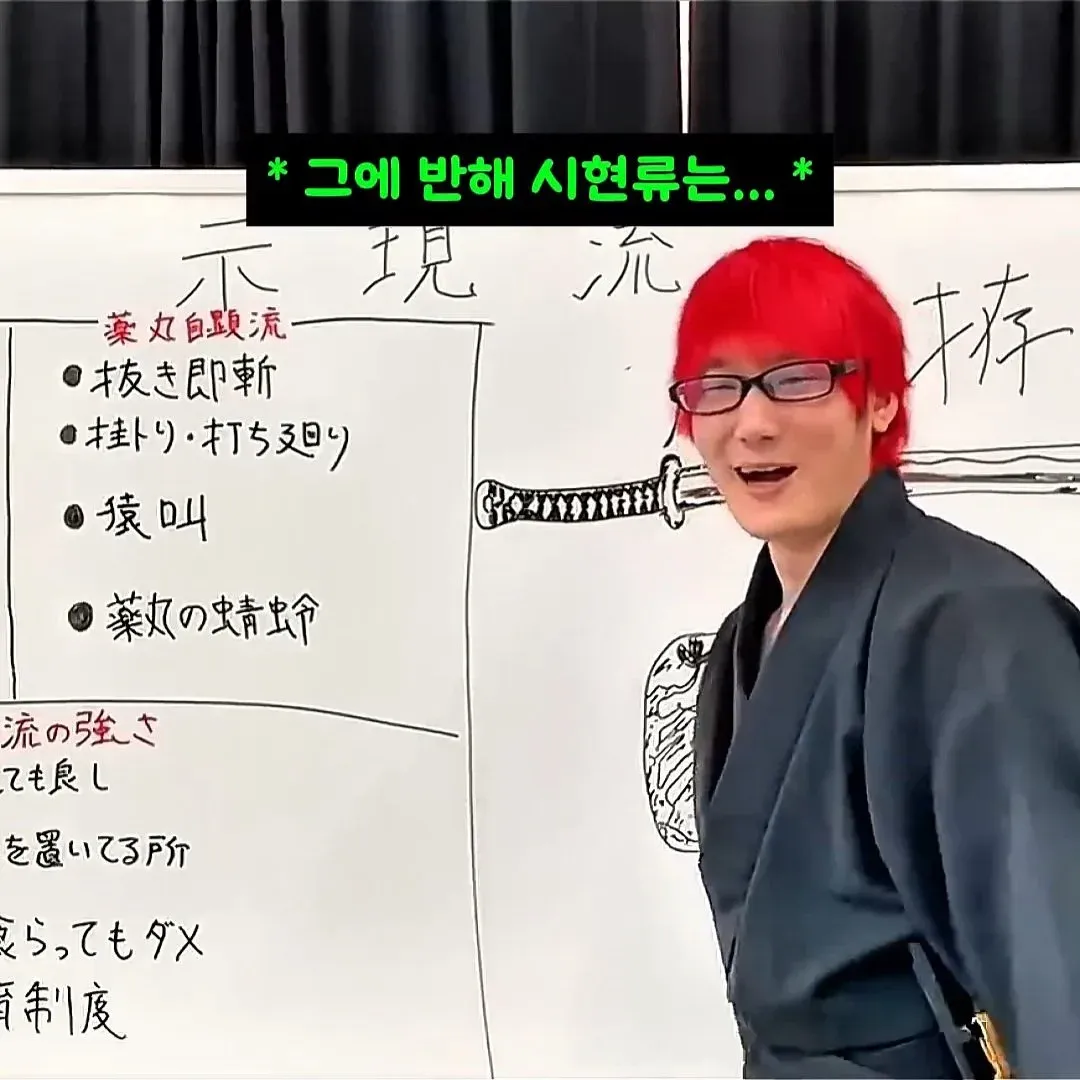 * 그에 반해 시현류는... *
示現流
薬丸自顕流
●抜き即斬
●掛トり・打ち廻り
●猿叫
●薬丸の蜻蛉
流の強さ
ても良し
を置いてる所
喰らってもダメ
育制度